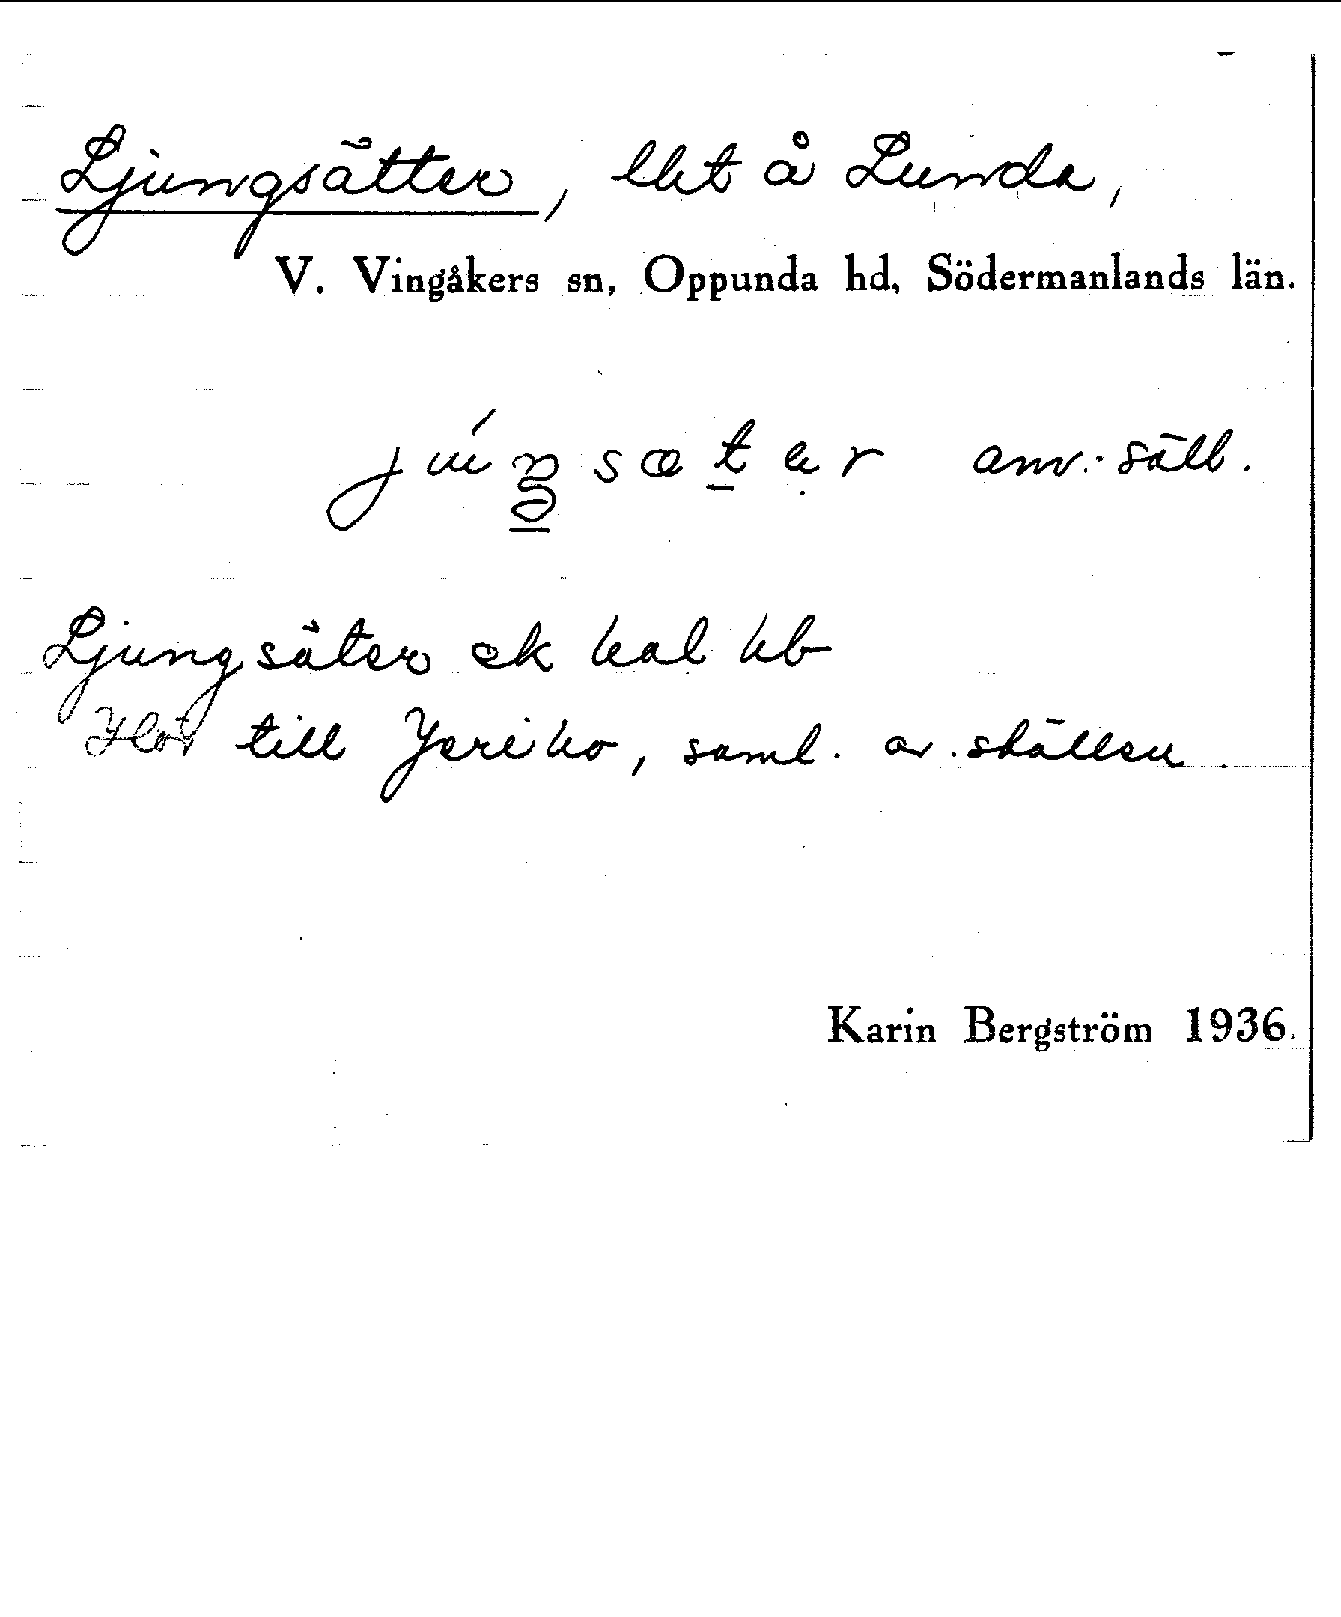 Ljungsätter, lht å Lunda,
V. Vingåkers sn, Oppunda hd, Södermanlands län.
júŋsætar anv. säll.
Ljungsäter ek kal kb
Hör till Jeriko, saml. av ställen.
Karin Bergström 1936.